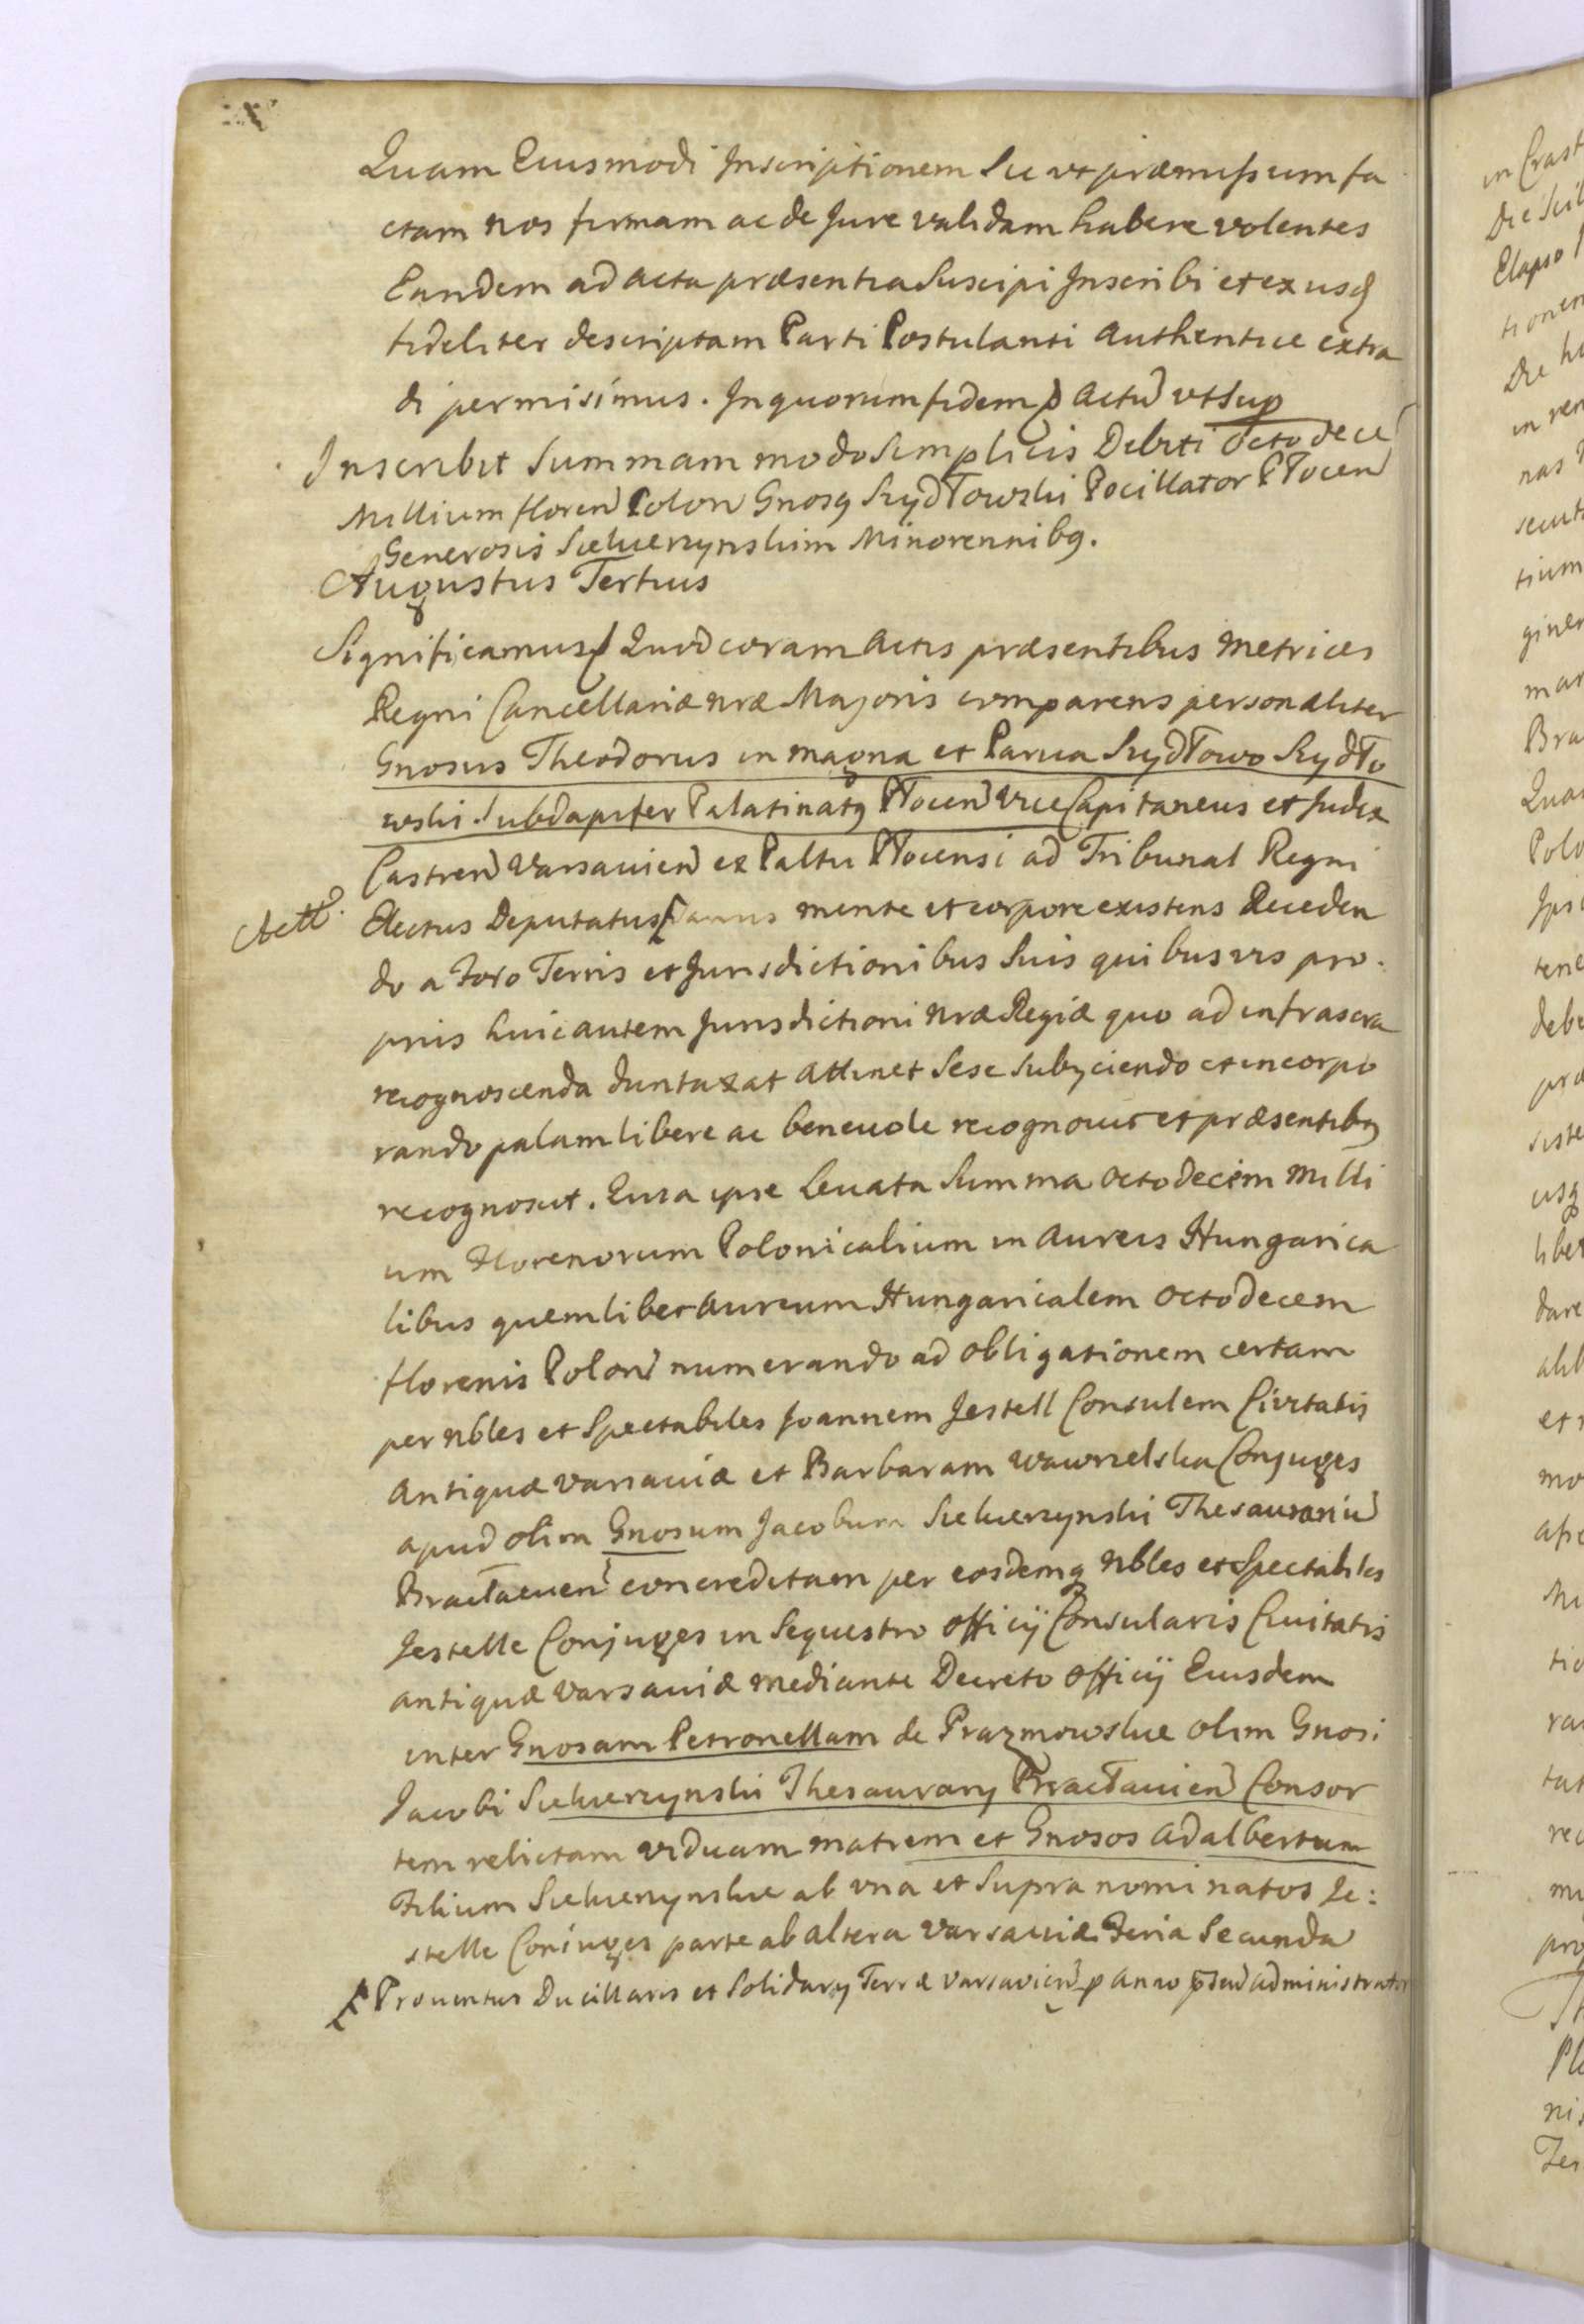 Quam Eiusmodi Inscriptionem Sic ut præmissum fa
ctam nos firmam ac de Jure validam habere volentes
Eandem ad acta præsentia Suscipi Inscribi et ex usq
fideliter descriptam Parti Postulanti Authentice extra
di permisimus. In quorum fidem p Actu ut Sup
Inscribit Summam modo Simplicis Debiti Octodece
Millium floren Polon Gnosq Szydłowski Pocillator Płocen
Generosis Siekierzynskim Minorennibq.
Augustus Tertius
Significamus Quod coram Actis præsentibus Metrices
Regni Cancellariæ nræ Majoris comparens personaliter
Gnosus Theodorus in magna et Parua Szydłowo Szydło
wski Subdapifer Palatinatq Płocen Vice Capitaneus et Judex
Castren Varsauien ex Paltu Płocensi ad Tribunal Regni
Actt. Electus Deputatus Sanus mente et corpore existens Receden
do a Foro Terris et Jurisdictionibus Suis quibusvis pro
priis huic autem Jurisdictioni nræ Regiæ quo ad infrascra
recognoscenda duntaxat Attinet Sese Subijciendo et incorpo
rando palam libere ac beneuole recognouit et præsentibq
recognoscit. Quia ipse Leuata Summa Octodecim Milli
um Florenorum Polonicalium in Aureis Hungarica
libus quemlibet Aureum Hungaricalem Octodecem
florenis Polon numerando ad Obligationem certam
per Nbles et Spectabiles Joannem Jestell Consulem Civitatis
Antiquæ Varsauiæ et Barbaram Wawrzelska Conjuges
apud olim Gnosum Jacobum Siekierzynski Thesaurariu
Bracłauien concreditam per eosdemq Nbles et Spectabiles
Jestelle Conjuges in Sequestro Officij Consularis Ciuitatis
antiquæ Varsauiæ mediante Decreto Officij Eiusdem
inter Gnosam Petronellam de Prazmowskie olim Gnosi
Jacobi Siekierzynski Thesaurary Bracłauien Consor
tem relictam viduam matrem et Gnosos Adalbertum
Filium Siekierzynskie ab vna et Supra nominatos Je:
stelle Coniuges parte ab altera Varsauiæ Feria Secunda
Prouentus Ducillaris et Solidary Terræ Varsavien p Anno psend administrator